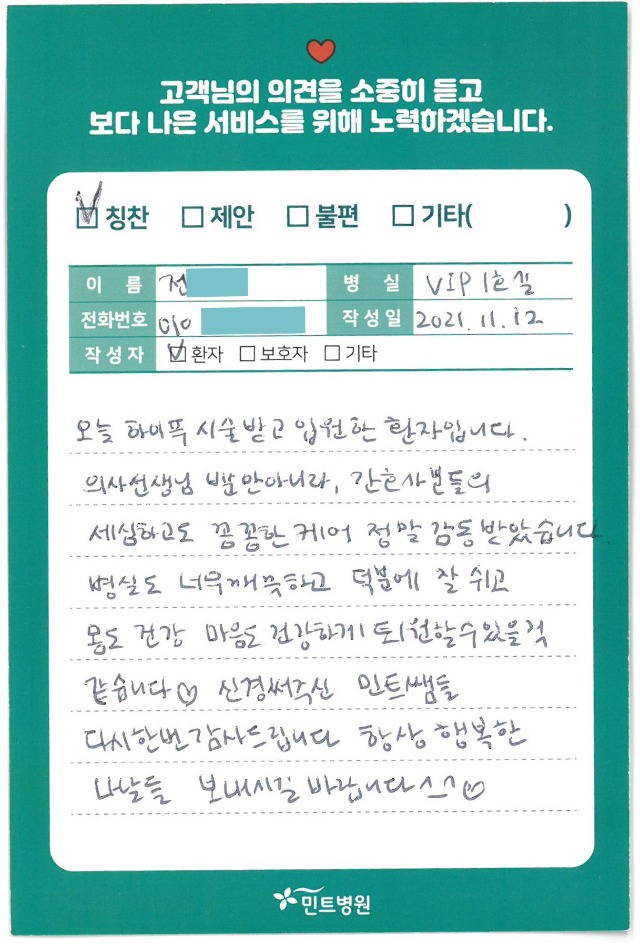 고객님의 의견을 소중히 듣고
보다 나은 서비스를 위해 노력하겠습니다.
칭찬 제안 불편 기타( )
이 름 전 병 실 VIP 1호실
전화번호 010 작성일 2021.11.12
작성자 환자 보호자 기타
오늘 하이푸 시술받고 입원한 환자입니다.
의사선생님 뿐만아니라, 간호사분들의
세심하고도 꼼꼼한 케어 정말 감동받았습니다
병실도 너무깨끗하고 덕분에 잘 쉬고
몸도 건강 마음도 건강하게 퇴원할수있을것
같습니다♡ 신경써주신 민트쌤들
다시한번감사드립니다 항상 행복한
나날들 보내시길 바랍니다 ^^♡
민트병원